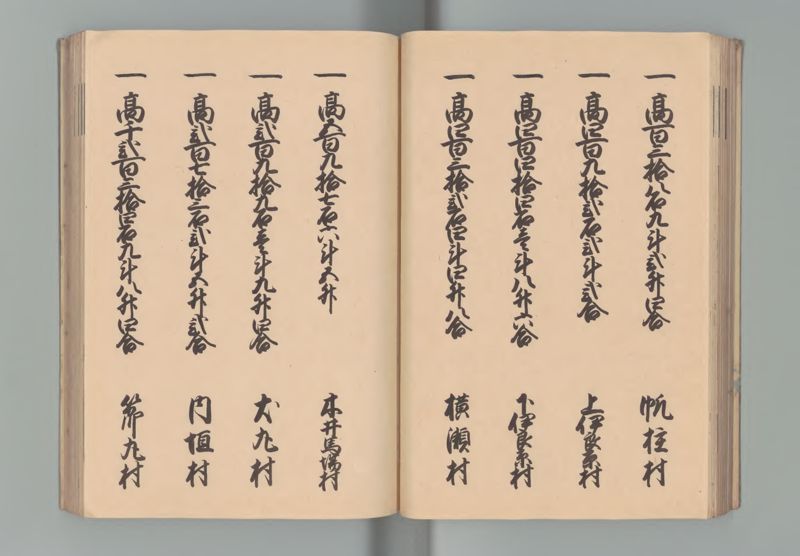 一 高百三拾八石九斗弐升四合 帆柱村
一 高四百九拾弐石弐斗弐合 上伊良原村
一 高四百四拾四石壱斗八升六合 下伊良原村
一 高四百三拾弐石四斗四升八合 横瀬村
一 高五百九拾七石六斗五升 木井馬場村
一 高弐百九拾九石壱斗九升四合 犬丸村
一 高弐百七拾三石弐斗五升弐合 内垣村
一 高千弐百三拾四石九斗八升四合 節丸村